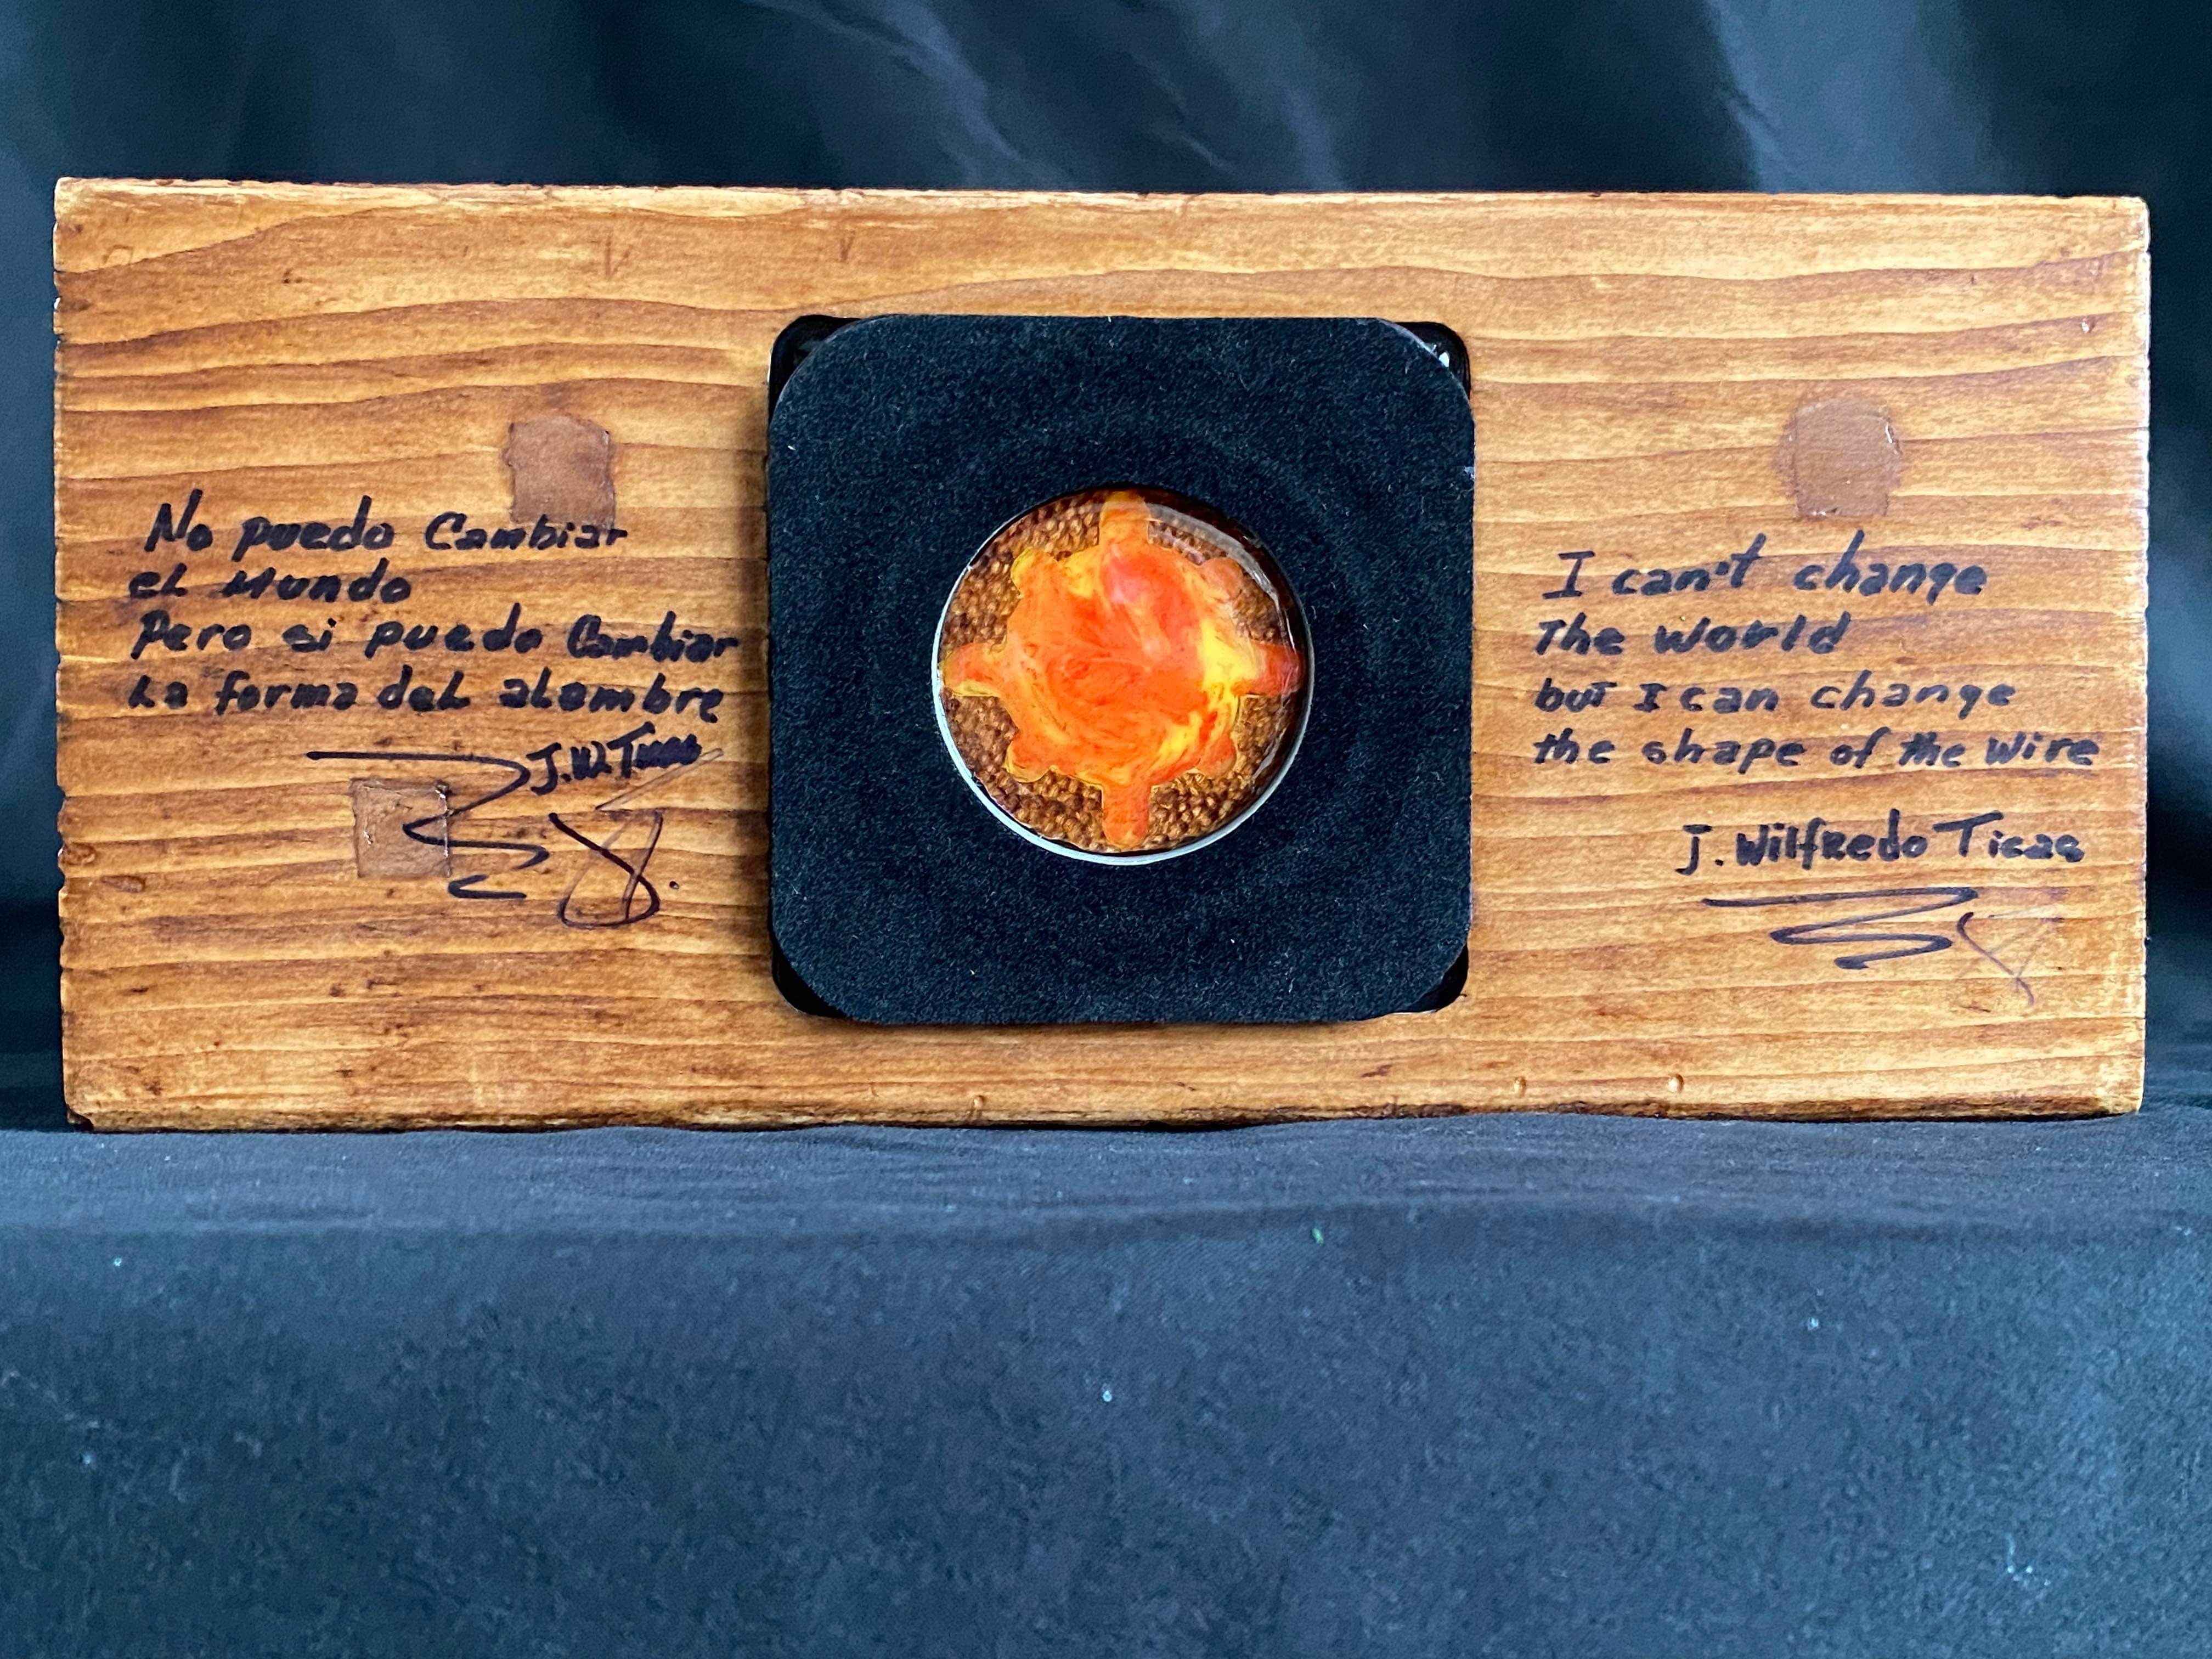 No puedo Cambiar
el Mundo
Pero si puedo Cambiar
La forma del alambre
J.W. Ticas
I can't change
The world
but I can change
the shape of the wire
J. Wilfredo Ticas